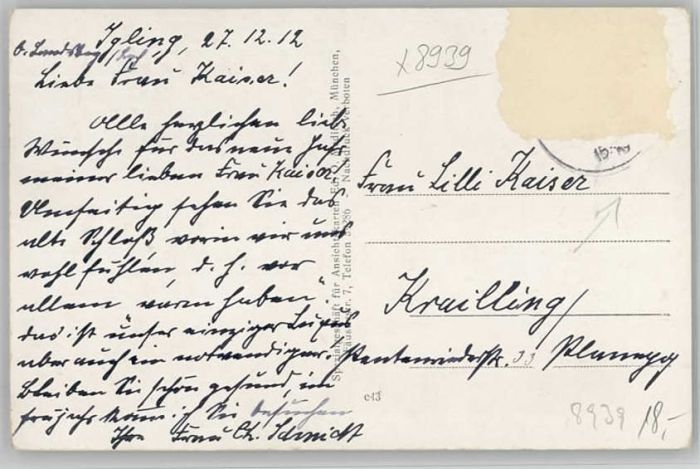 Igling, 27.12.12
b. Landsberg/Lech
Liebe Frau Kaiser!
Alle herzlichen liebe
Wünsche für das neue Jahr
meiner lieben Frau Kaiser.
Umseitig sehen Sie das
alte Schloß worin wir uns
wohlfühlen, d. h. vor
allem warm haben,
das ist unser einziger Luxus
aber auch ein notwendiger.
Bleiben Sie schön gesund, im
Frühjahr komm ich Sie besuchen
Ihre Frau Ch. Schmidt
Spezialgeschäft für Ansichtskarten München,
Nr. 7, Telefon Nachdruck verboten
c43
x 8939
Frau Lilli Kaiser
Krailling/
Pentenriederstr. 33 Planegg
8939 18,-